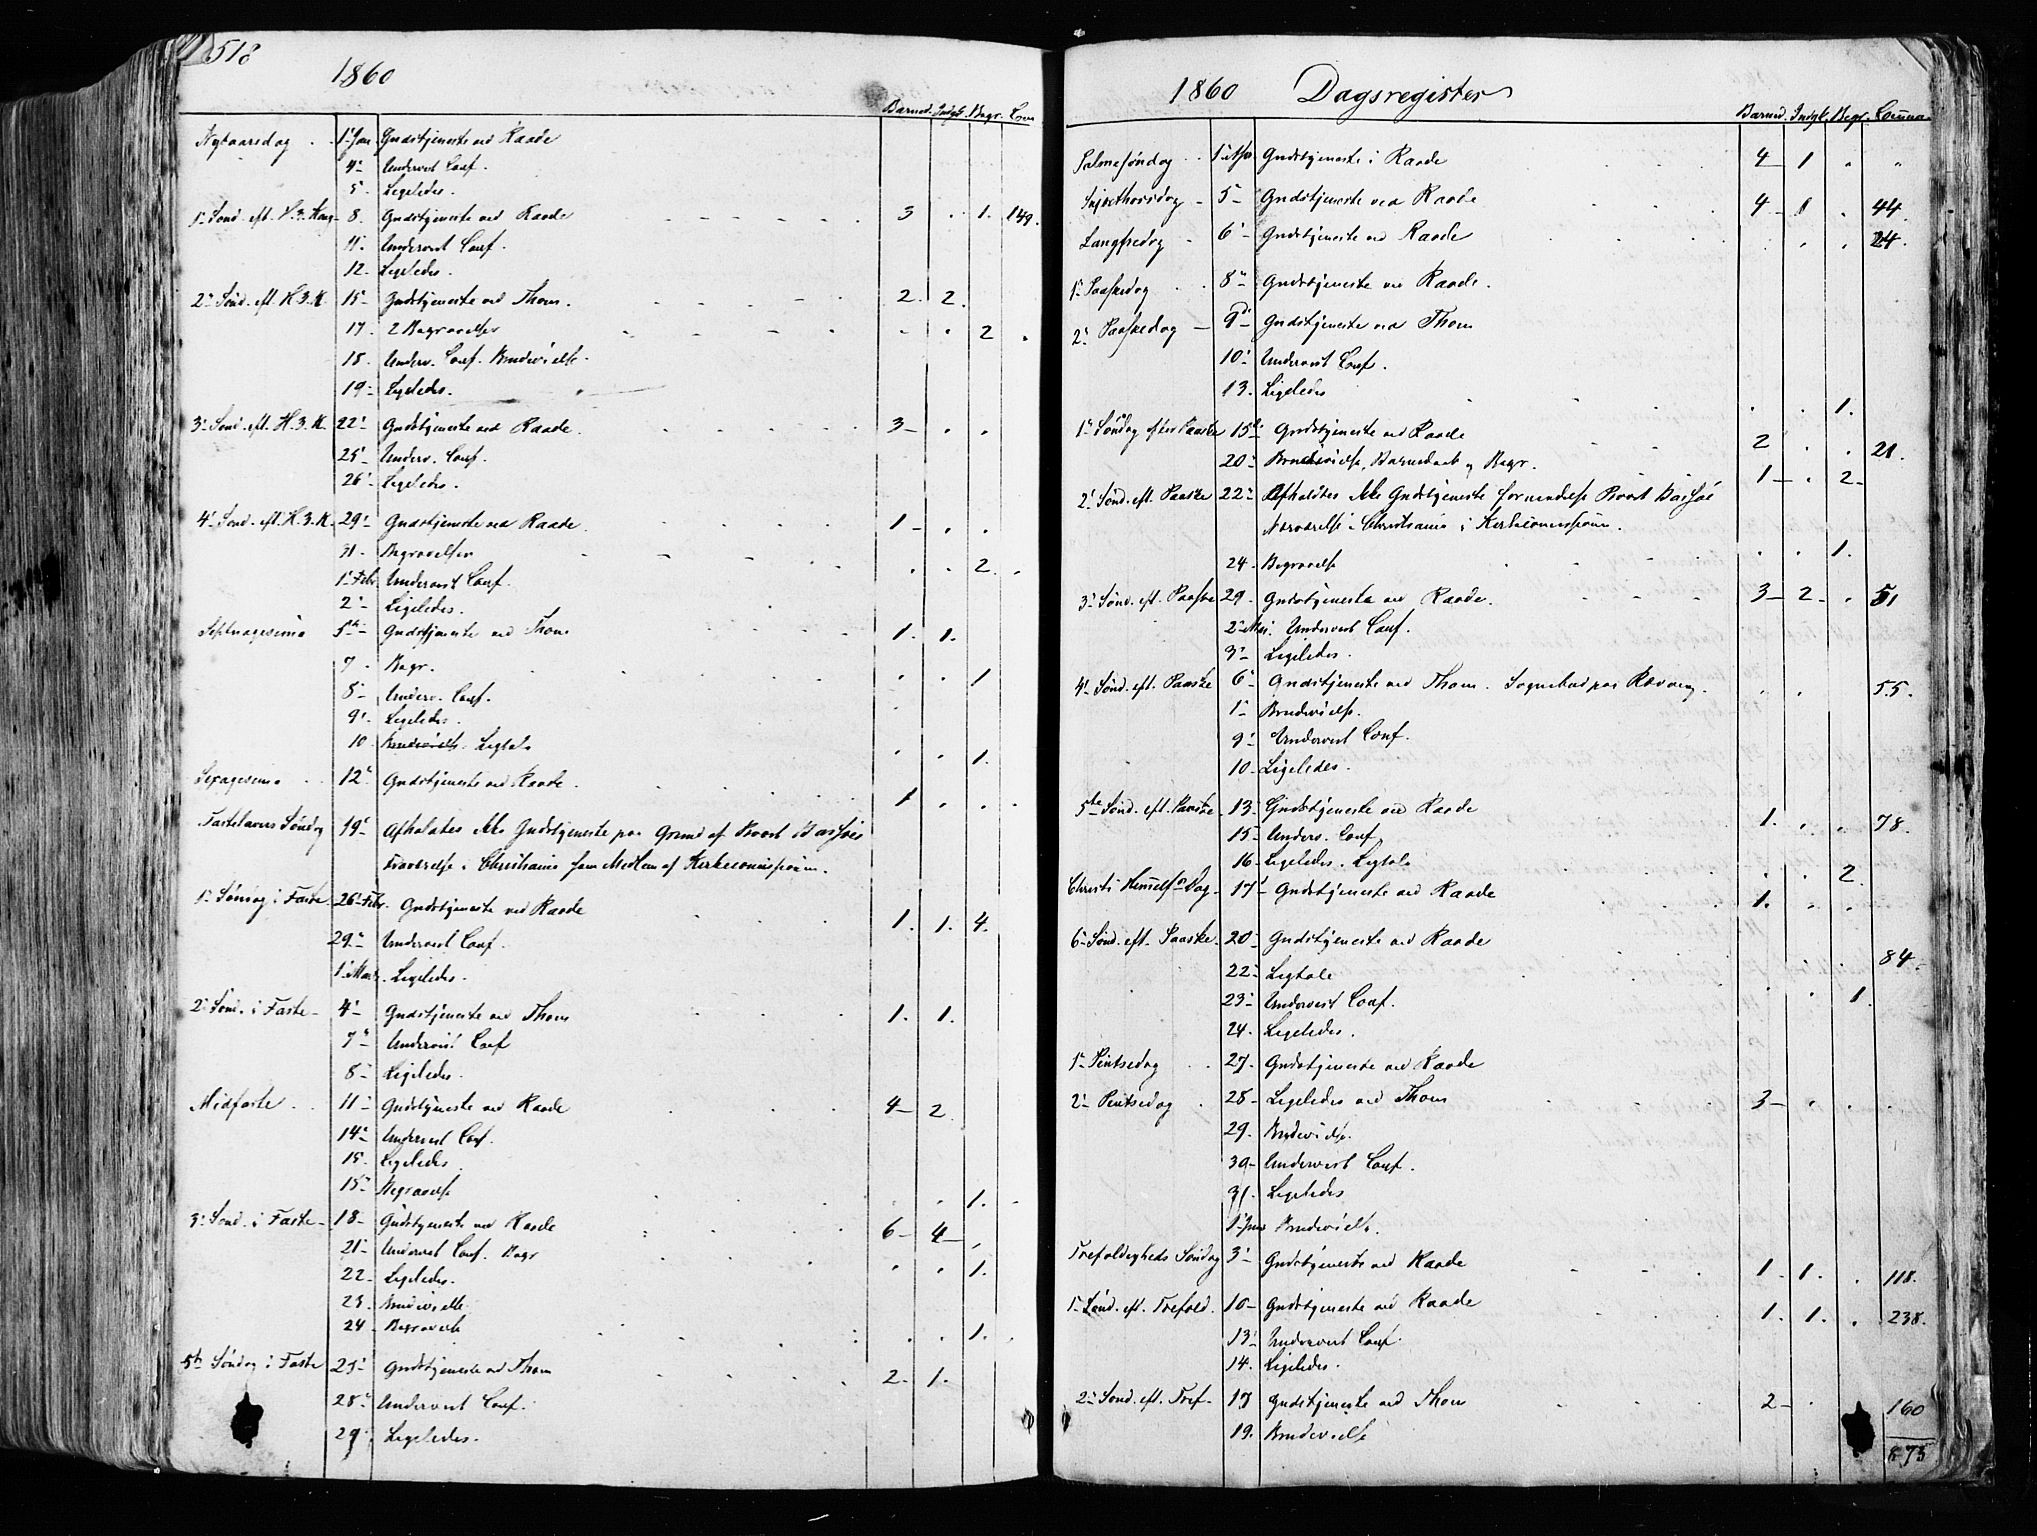 518
1860
Barned. Indgt. Begr. Com
Nytaarsdag . . 1' Jan. Gudstjeneste ved Raade
4 - Undervist Conf.
5. Ligeledes.
1. Sønd. eft. H. 3. Kong. 8. Gudstjeneste ved Raade 3 . 1. 149.
11. Undervist Conf.
12. Ligeledes.
2. Sønd. eft. H. 3. K. 15 - Gudstjeneste ved Thom. 2. 2.
17. 2 Begravelser . . 2 .
18. Underv. Conf. Brudevielse.
19 - Ligeledes.
3. Sønd. eft. H. 3. K. 22. Gudstjeneste ved Raade. 3 - . .
25 - Underv. Conf.
26. Ligeledes.
4. Sønd. eft. H. 3. K. 29. Gudstjeneste ved Raade. 1 - . .
31 - Begravelser . . 2. .
1. Febr. Undervist Conf.
2 - Ligeledes.
Septuagesima 5te Gudstjeneste ved Thom 1. 1.
7. Begr. . . 1
8 - Underv. Conf.
9. Ligeledes.
10 Brudevielse. Ligtale . . 1.
Sexagesima . . 12. Gudstjeneste ved Raade. 1 . . .
Fastelavens Søndag 19. Afholdtes ikke Gudstjeneste paa Grund af Provst Bassøes
Fraværelse i Christiania som Medlem af Kirkecommissionen.
1. Søndag i Faste 26. Febr. Gudstjeneste ved Raade 1. 1. 4.
29. Undervist Conf.
1. Marts. Ligeledes.
2. Sønd. i Faste - 4 - Gudstjeneste ved Thom 1. 1.
7. Undervist Conf
8 - Ligeledes.
Midfaste . . 11 - Gudstjeneste ved Raade 4 - 2
14. Undervist Conf.
15. Ligeledes
15. Begravelse . . 1. .
3. Sønd. i Faste - 18 - Gudstjeneste ved Raade 6 - 4 - .
21 - Undervist Conf. Begr . . 1.
22 - Ligeledes.
23. Brudevielse.
24 - Begravelse . . 1. .
5te Søndag i Faste 25. Gudstjeneste ved Thom 2. 1.
28. Undervist Conf.
29. Ligeledes.
1860 Dagsregister
Barned. Indgt. Begr. Commu.
Palmesøndag . . 1. Apr. Gudstjeneste i Raade 4 - 1 . .
Skjærthorsdag - 5 - Gudstjeneste ved Raade 4 - 1 . 44.
Langfredag - 6 - Gudstjeneste ved Raade . . . 24.
1. Paaskedag . . 8. Gudstjeneste ved Raade.
2. Paaskedag - 9de Gudstjeneste ved Thom
10. Undervist Conf.
13. Ligeledes . . 1.
1. Søndag efter Paaske 15de Gudstjeneste ved Raade 2 . . 21.
20. Brudevielse, Barnedaab og Begr. 1 - . 2 -
2. Sønd. eft. Paaske 22. Afholdtes ikke Gudstjeneste formedelst Provst Bassøes
Nærværelse i Christiania i Kirkecommissionen.
24. Begravelse . . 1.
3. Sønd. eft. Paaske 29. Gudstjeneste ved Raade. 3 - 2 - . 51
2. Mai. Undervist Conf.
3 - Ligeledes.
4. Sønd. eft. Paaske 6 - Gudstjeneste ved Thom. Sognebud paa . . 55.
1 - Brudevielse.
9. Undervist Conf.
10 - Ligeledes.
5te Sønd. eft. Paaske 13. Gudstjeneste ved Raade 1. . . 78.
15 - Underv. Conf
16 - Ligeledes. Ligtale . . 2.
Christi Himmelf. Dag. 17. Gudstjeneste ved Raade 1. . .
6. Sønd. eft. Paaske. 20 - Gudstjeneste ved Raade . . . 84.
22 - Ligtale . . 1.
23 - Undervist Conf.
24. Ligeledes.
1. Pintsedag . . 27. Gudstjeneste ved Raade
2 - Pintsedag . 28 - Ligeledes ved Thom 3 - . . .
29. Brudevielse.
30 - Undervist Conf.
31. Ligeledes
1. Juni Brudevielse.
Trefoldigheds Søndag 3. Gudstjeneste ved Raade 1. 1. . 118.
1. Sønd. eft. Trefold. 10 - Gudstjeneste ved Raade 1. 1. . 238.
13. Undervist Conf.
14. Ligeledes.
2. Sønd. eft. Tref - 17 Gudstjeneste ved Thom 2 - . 160
19. Brudevielse
875